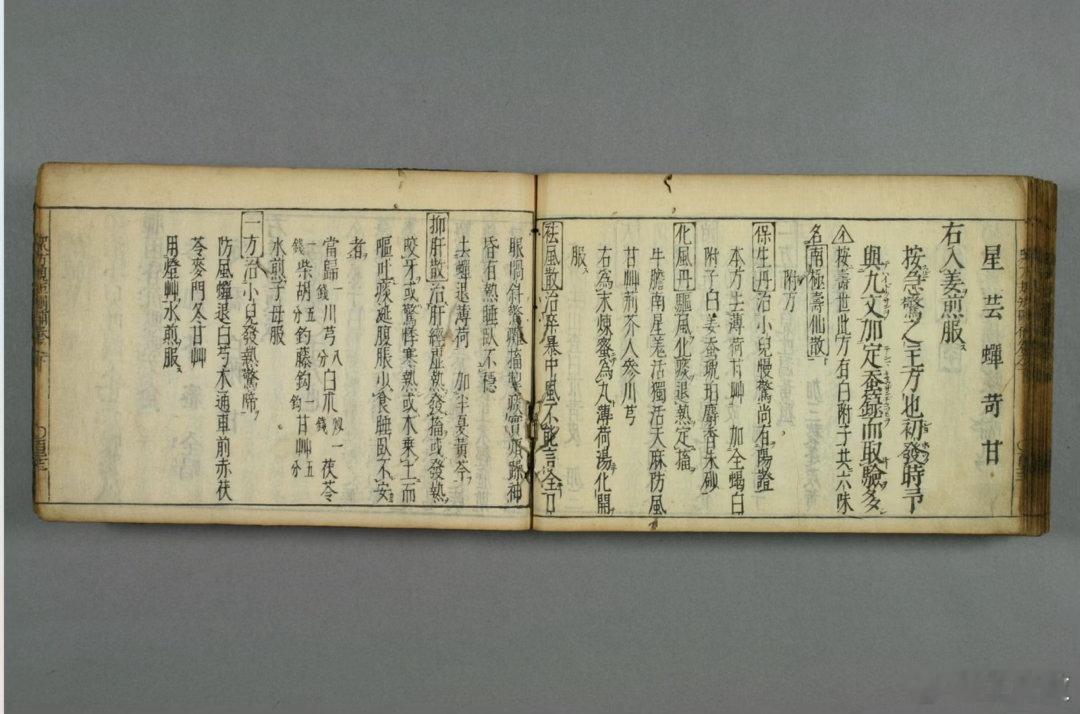 星芸蟬苛甘
右入姜煎服
按急驚之主方也初發時予
與九文加定蚕錠而取驗多
△按壽世此方有白附子共六味
名南極壽仙散
附方
保生丹治小兒慢驚尚有陽證
本方主薄荷甘艸 加全蝎白
附子白姜蚕琥珀麝香朱砂
化風丹驅風化痰退熱定搐
牛膽南星羗活獨活天麻防風
甘艸荊芥人參川芎
右為末煉蜜為丸薄荷湯化開
服
祛風散治猝暴中風不能言全口
眼喎斜驚癇搐掣痰實煩躁神
昏有熱睡臥不穩
主蟬退薄荷 加半夏黃芩
抑肝散治肝經虛熱發搐或發熱
咬牙或驚悸寒熱或木乘土而
嘔吐痰涎腹脹少食睡臥不安
者
當歸一錢川芎八分白朮 一茯苓
一錢柴胡五分釣藤鈎一錢甘艸五分
水煎子母服
一方治小兒發熱驚啼
防風蟬退白芍木通車前赤茯
苓麥門冬甘艸
用燈艸水煎服